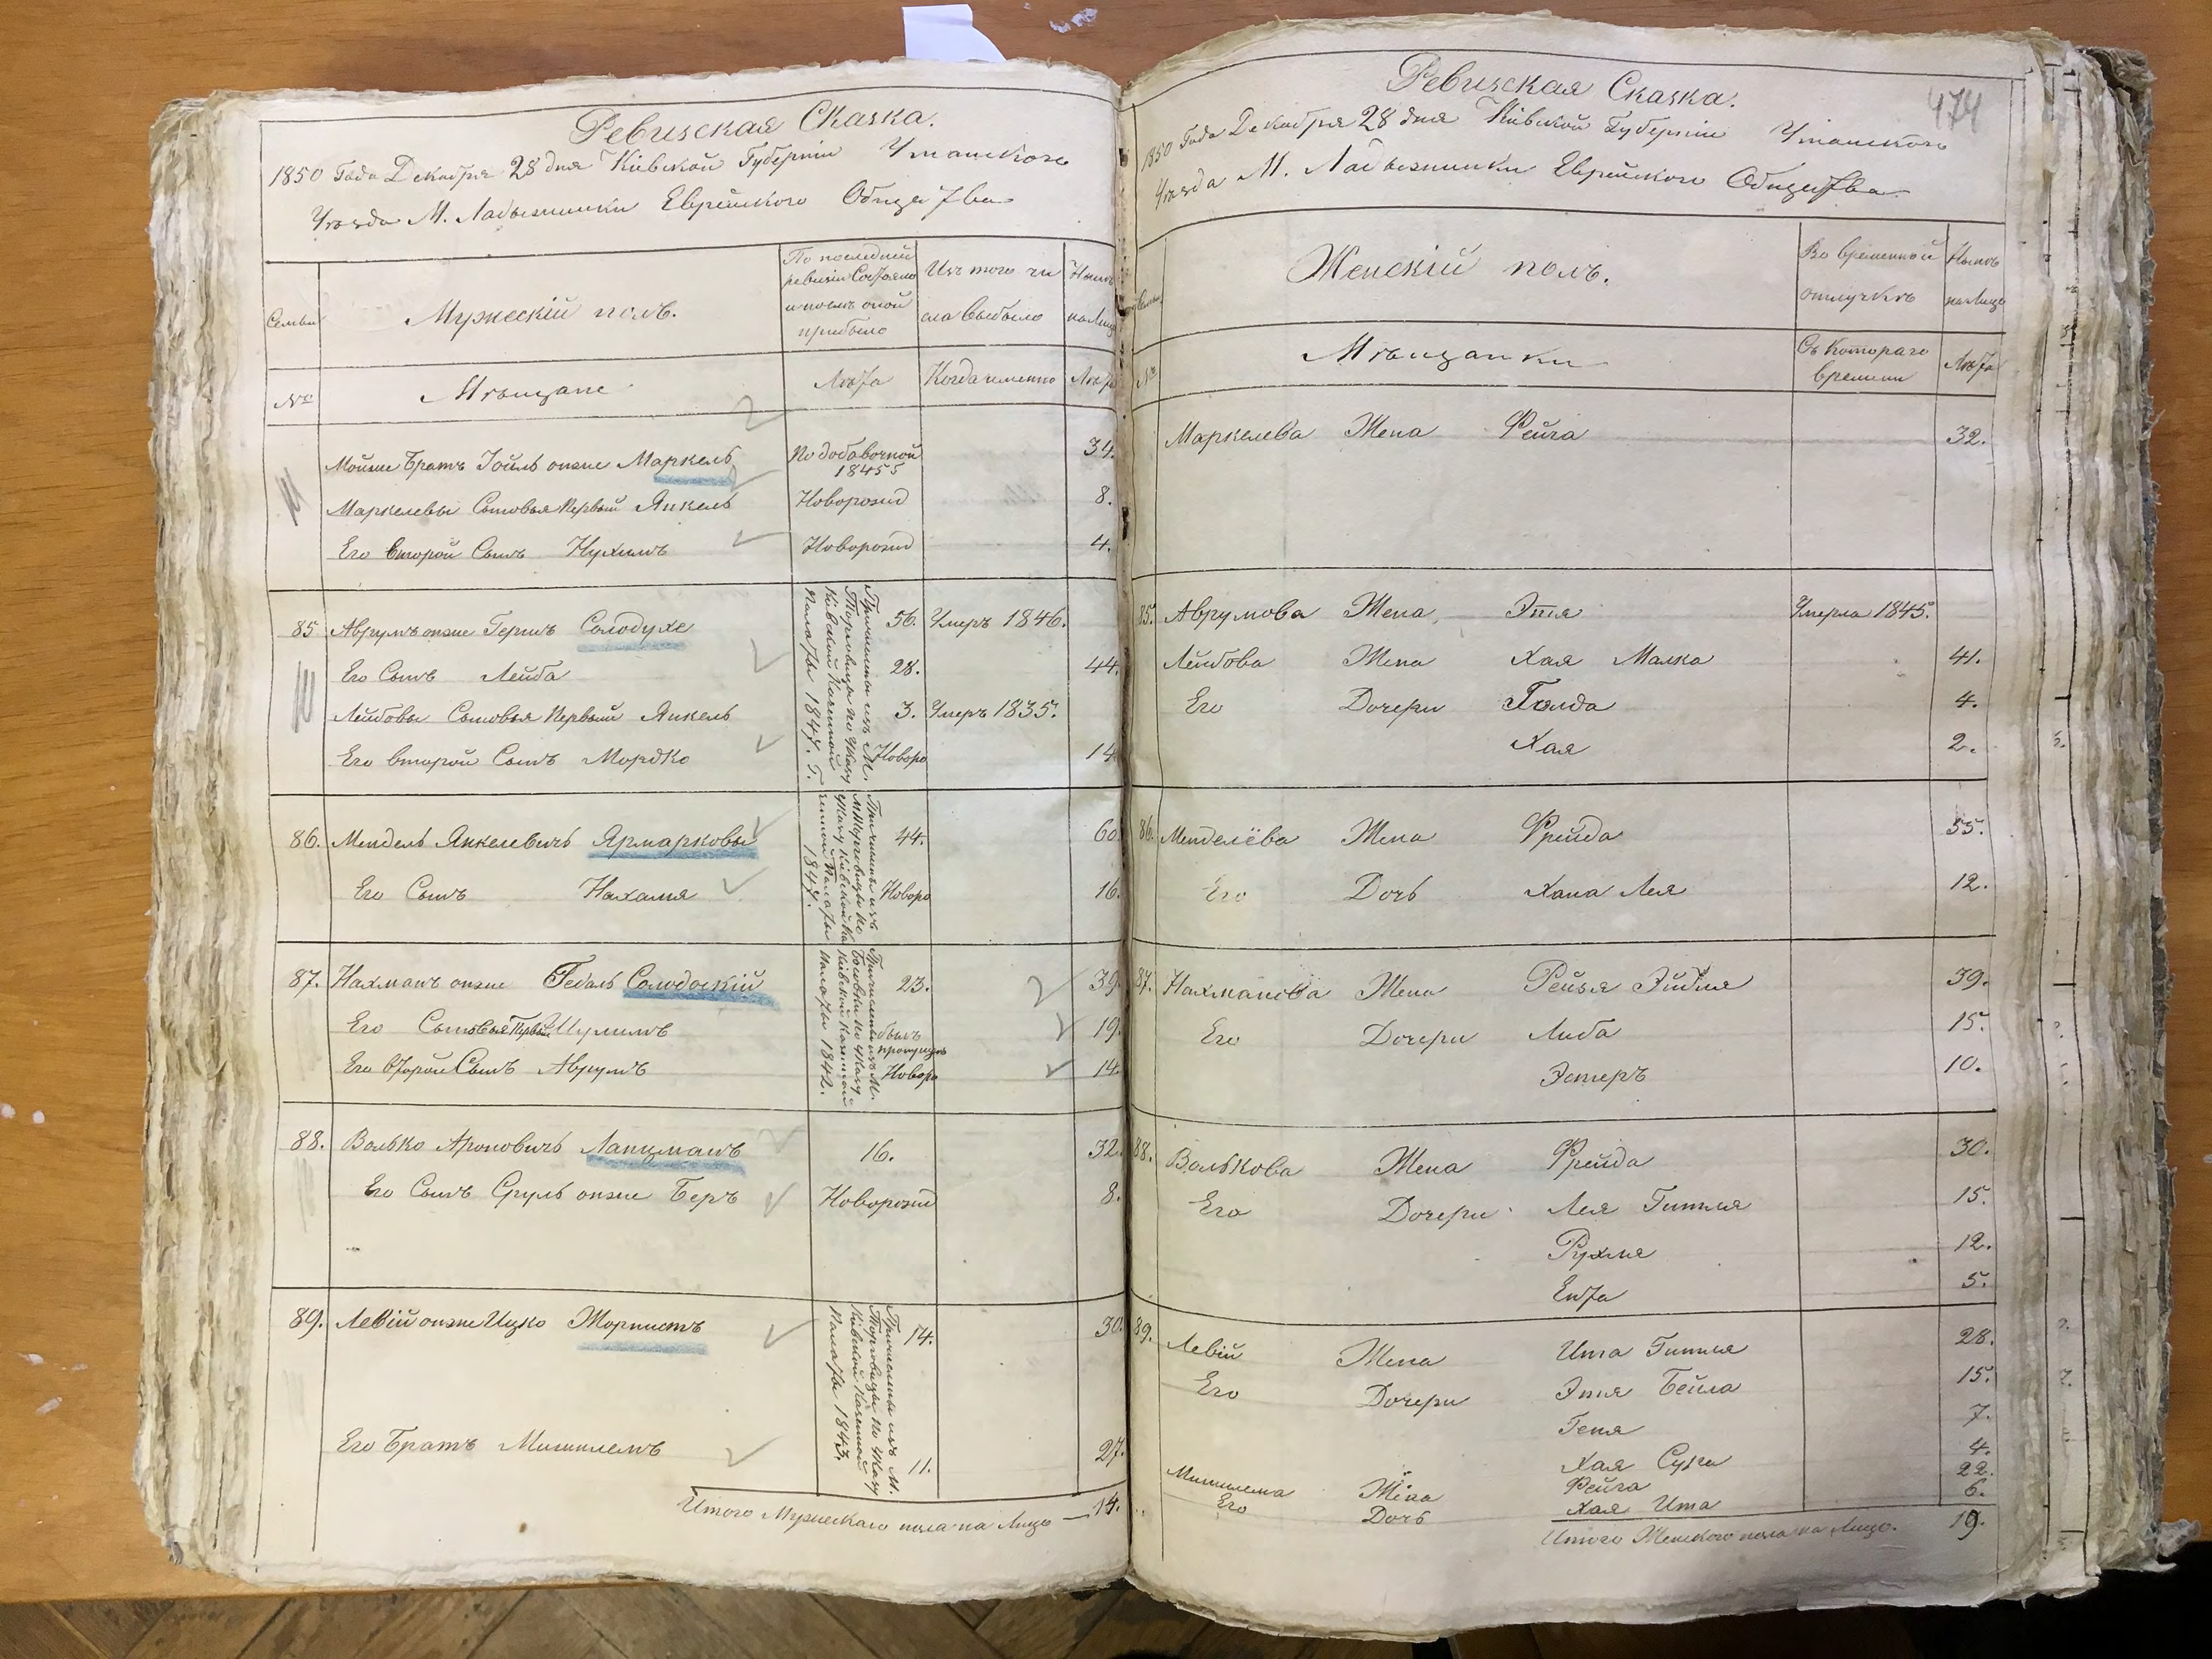 Ревизская Сказка.
1850 Года Декабря 28 дня Кіевской Губерніи Уманскаго
Уезда М. Ладыжинки Еврейского Общества
Семьи
Мужескій полъ.
По последней ревизіи состояло и после оной прибыло
Изъ того числа выбыло
Ныне на лицо
№
Мещане
Лета
Когда именно
Лета
Мойше Братъ Іойль онже Маркель По добавочной 1845 34.
Маркелевы Сыновья Первый Янкель Новорожд 8.
Его второй Сынъ Нухимъ Новорожд 4.
85 Аврумъ онже Гершъ Солодухе 56. Умеръ 1846.
Его Сынъ Лейба 28. 44.
Лейбовы Сыновья Первый Янкель 3. Умеръ 1835.
Его второй Сынъ Мордко Новоро 14
Причислены изъ М. Торговицы по Указу Кіевской Казенной Палаты 1847. Г.
86. Мендель Янкелевичъ Ярмарковы 44. 60
Его Сынъ Нахамя Новоро 16.
Причислены изъ М. Торговицы по Указу Кіевской Казенной Палаты 1847.
87. Нахманъ онже Гедаль Солодоскій 23. 39
Его Сыновья Первый Шулимъ былъ пропущенъ 19.
Его Второй Сынъ Аврумъ Новоро 14.
Причислены изъ М. по Указу Кіевской Казенной Палаты 1842.
88. Волько Ароновичъ Лапцманъ 16. 32
Его Сынъ Сруль онже Беръ Новорожд 8.
89. Левій онже Ицко Жорнистъ 14. 30.
Его Братъ Мишилемъ 11. 27.
Причислены изъ М. Торговицы по Указу Кіевской Казенной Палаты 1843.
Итого Мужескаго пола на Лицо — 14.
474
Ревизская Сказка.
1850 Года Декабря 28 дня Кіевской Губерніи Уманскаго
Уезда М. Ладыжинки Еврейского Общества
Семьи
Женскій полъ.
Во временной отлучкъ
Ныне на Лицо
№
Мещанки
Съ Котораго времени
Лета
Маркелева Жена Фейга 32.
85. Аврумова Жена Этя Умерла 1845.
Лейбова Жена Хая Малка 41.
Его Дочери Голда 4.
Хая 2.
86. Менделёва Жена Фрейда 55.
Его Дочь Хана Лея 12.
87. Нахманова Жена Рейзя Эйдля 39.
Его Дочери Либа 15.
Эстеръ 10.
88. Волькова Жена Фрейда 30.
Его Дочери Лея Гитля 15.
Рухля 12.
Ента 5.
89. Левій Жена Ита Гитля 28.
Его Дочери Этя Бейла 15.
Геня 7.
Хая Сура 4.
Мишилема Жена Фейга 22.
Его Дочь Хая Ита 6.
Итого Женского пола на Лицо. 19.